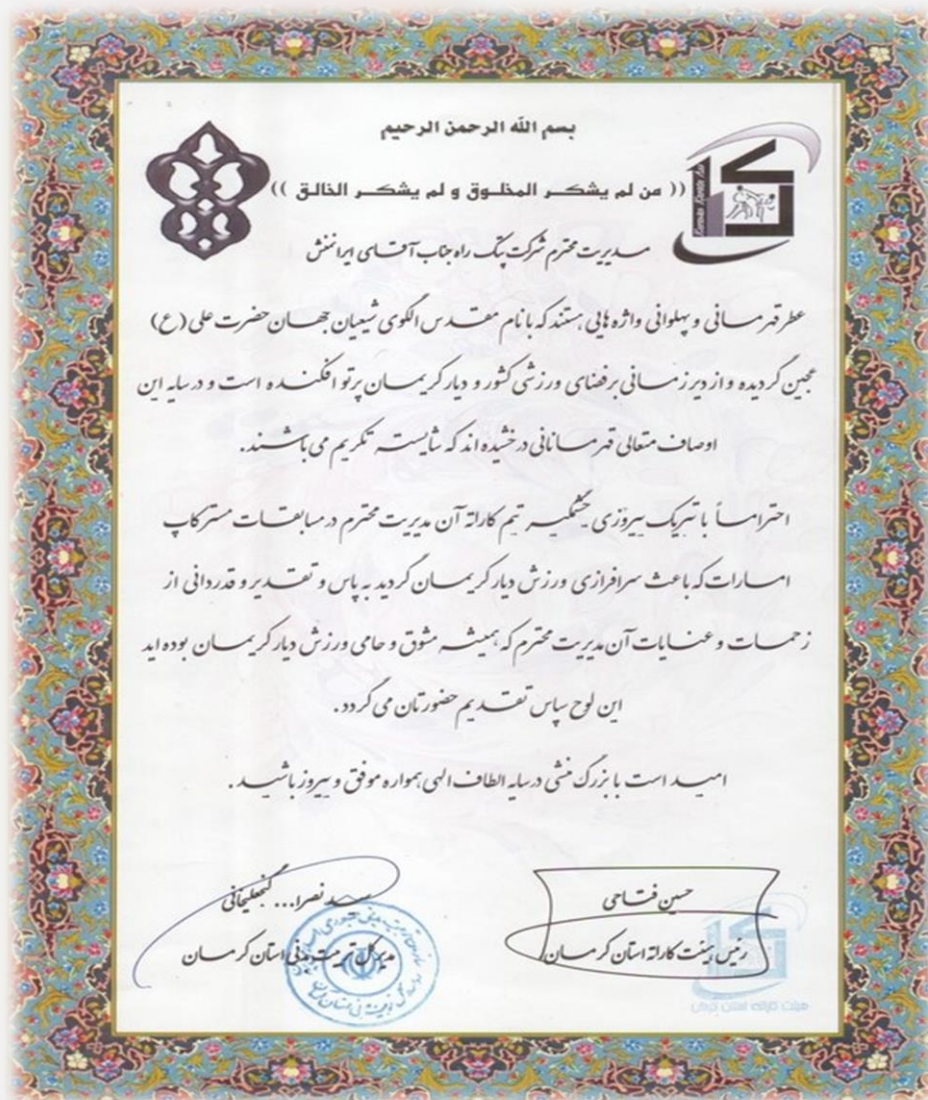 بسم الله الرحمن الرحیم
(( من لم یشکر المخلوق و لم یشکر الخالق ))
مدیریت محترم شرکت پتک راه جناب آقای ایرانمنش
عطر قهرمانی و پهلوانی واژه هایی هستند که با نام مقدس الگوی شیعیان جهان حضرت علی (ع)
عجین گردیده و از دیر زمانی بر فضای ورزشی کشور و دیار کریمان پرتو افکنده است و در سایه این
اوصاف متعالی قهرمانانی درخشیده اند که شایسته تکریم می باشند.
احتراماً با تبریک پیروزی چشمگیر تیم کاراته آن مدیریت محترم در مسابقات مسترکاپ
امارات که باعث سرافرازی ورزش دیار کریمان گردید به پاس و تقدیر و قدردانی از
زحمات و عنایات آن مدیریت محترم که همیشه مشوق و حامی ورزش دیار کریمان بوده اید
این لوح سپاس تقدیم حضورتان می گردد.
امید است با بزرگ منشی در سایه الطاف الهی همواره موفق و پیروز باشید.
حسین فتاحی
رئیس هیئت کاراته استان کرمان
سید نصرا... گنجعلیخانی
مدیرکل تربیت بدنی استان کرمان
هیئت کاراته استان کرمان